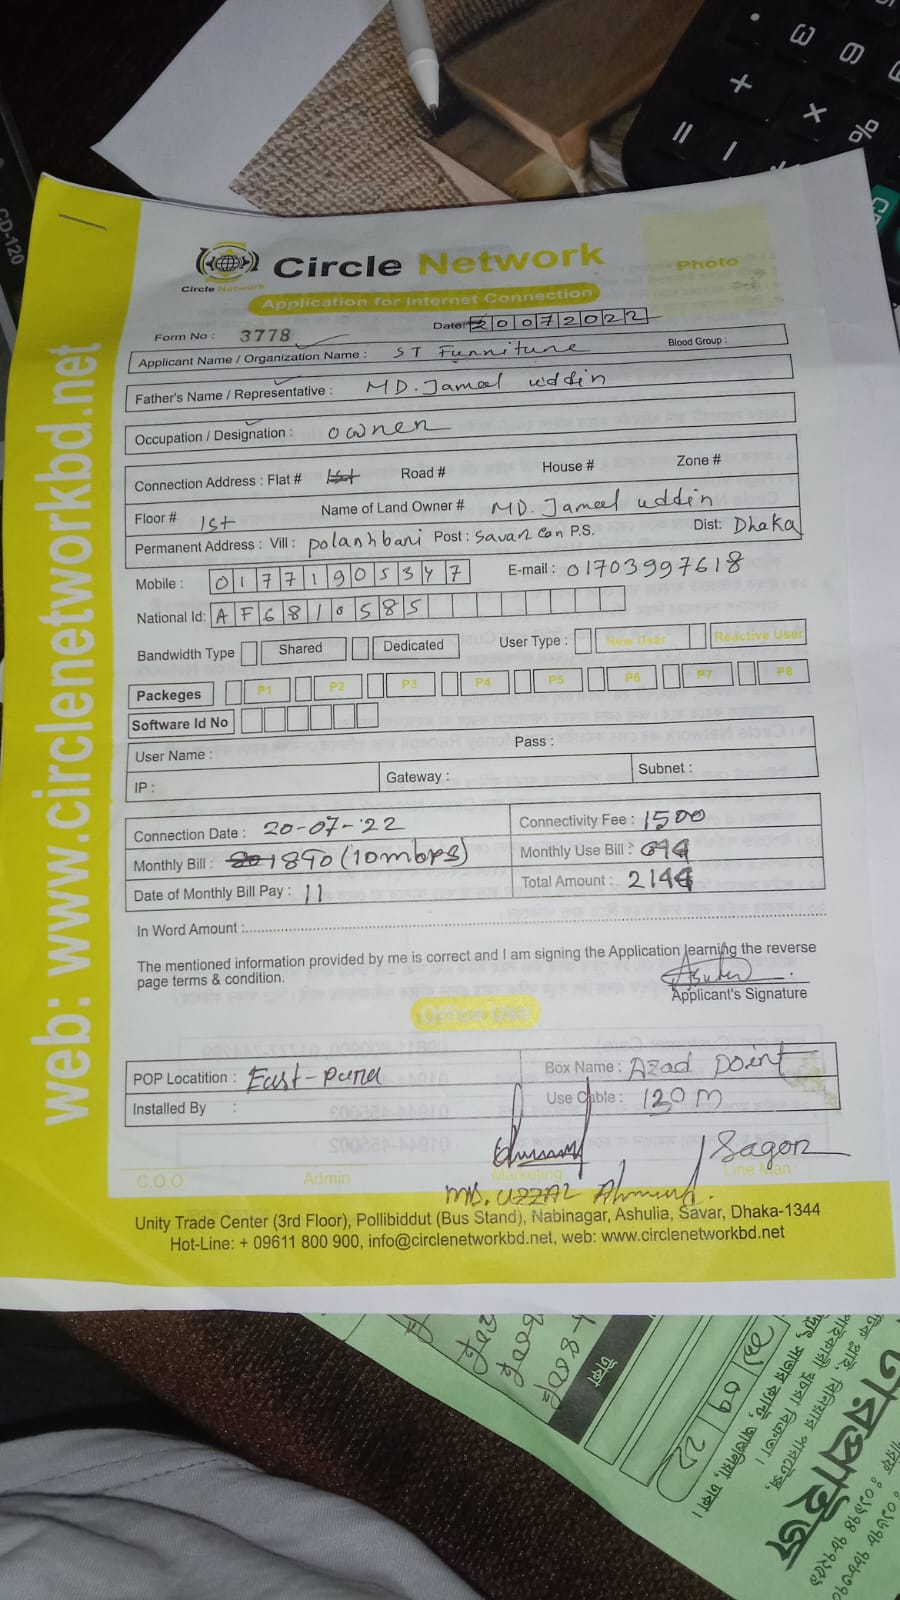 Circle Network
Circle Network
Application for Internet Connection
Photo
Form No : 3778
Date: 20072022
Applicant Name / Organization Name : ST Furniture
Blood Group :
Father's Name / Representative : MD. Jameel uddin
Occupation / Designation : owner
Connection Address : Flat # Road # House # Zone #
Floor # 1st Name of Land Owner # MD. Jameel uddin
Permanent Address : Vill : polashbari Post : Savar Can P.S. Dist: Dhaka
Mobile : 01771905347 E-mail : 01703997618
National Id: AF6810585
Bandwidth Type Shared Dedicated User Type : New User Reactive User
Packeges P1 P2 P3 P4 P5 P6 P7 P8
Software Id No
User Name : Pass :
IP : Gateway : Subnet :
Connection Date : 20-07-'22 Connectivity Fee : 1500
Monthly Bill : 1890 (10mbps) Monthly Use Bill :
Date of Monthly Bill Pay : 11 Total Amount : 2144
In Word Amount :
The mentioned information provided by me is correct and I am signing the Application learning the reverse
page terms & condition.
Applicant's Signature
POP Locatition : East-Para Box Name : Azad point
Installed By : Use Cable : 120 m
Sagor
C.O.O Admin Marketing Line Man
MD. UZZAL Ahmed.
Unity Trade Center (3rd Floor), Pollibiddut (Bus Stand), Nabinagar, Ashulia, Savar, Dhaka-1344
Hot-Line: + 09611 800 900, info@circlenetworkbd.net, web: www.circlenetworkbd.net
web: www.circlenetworkbd.net
CD-120
টাকা